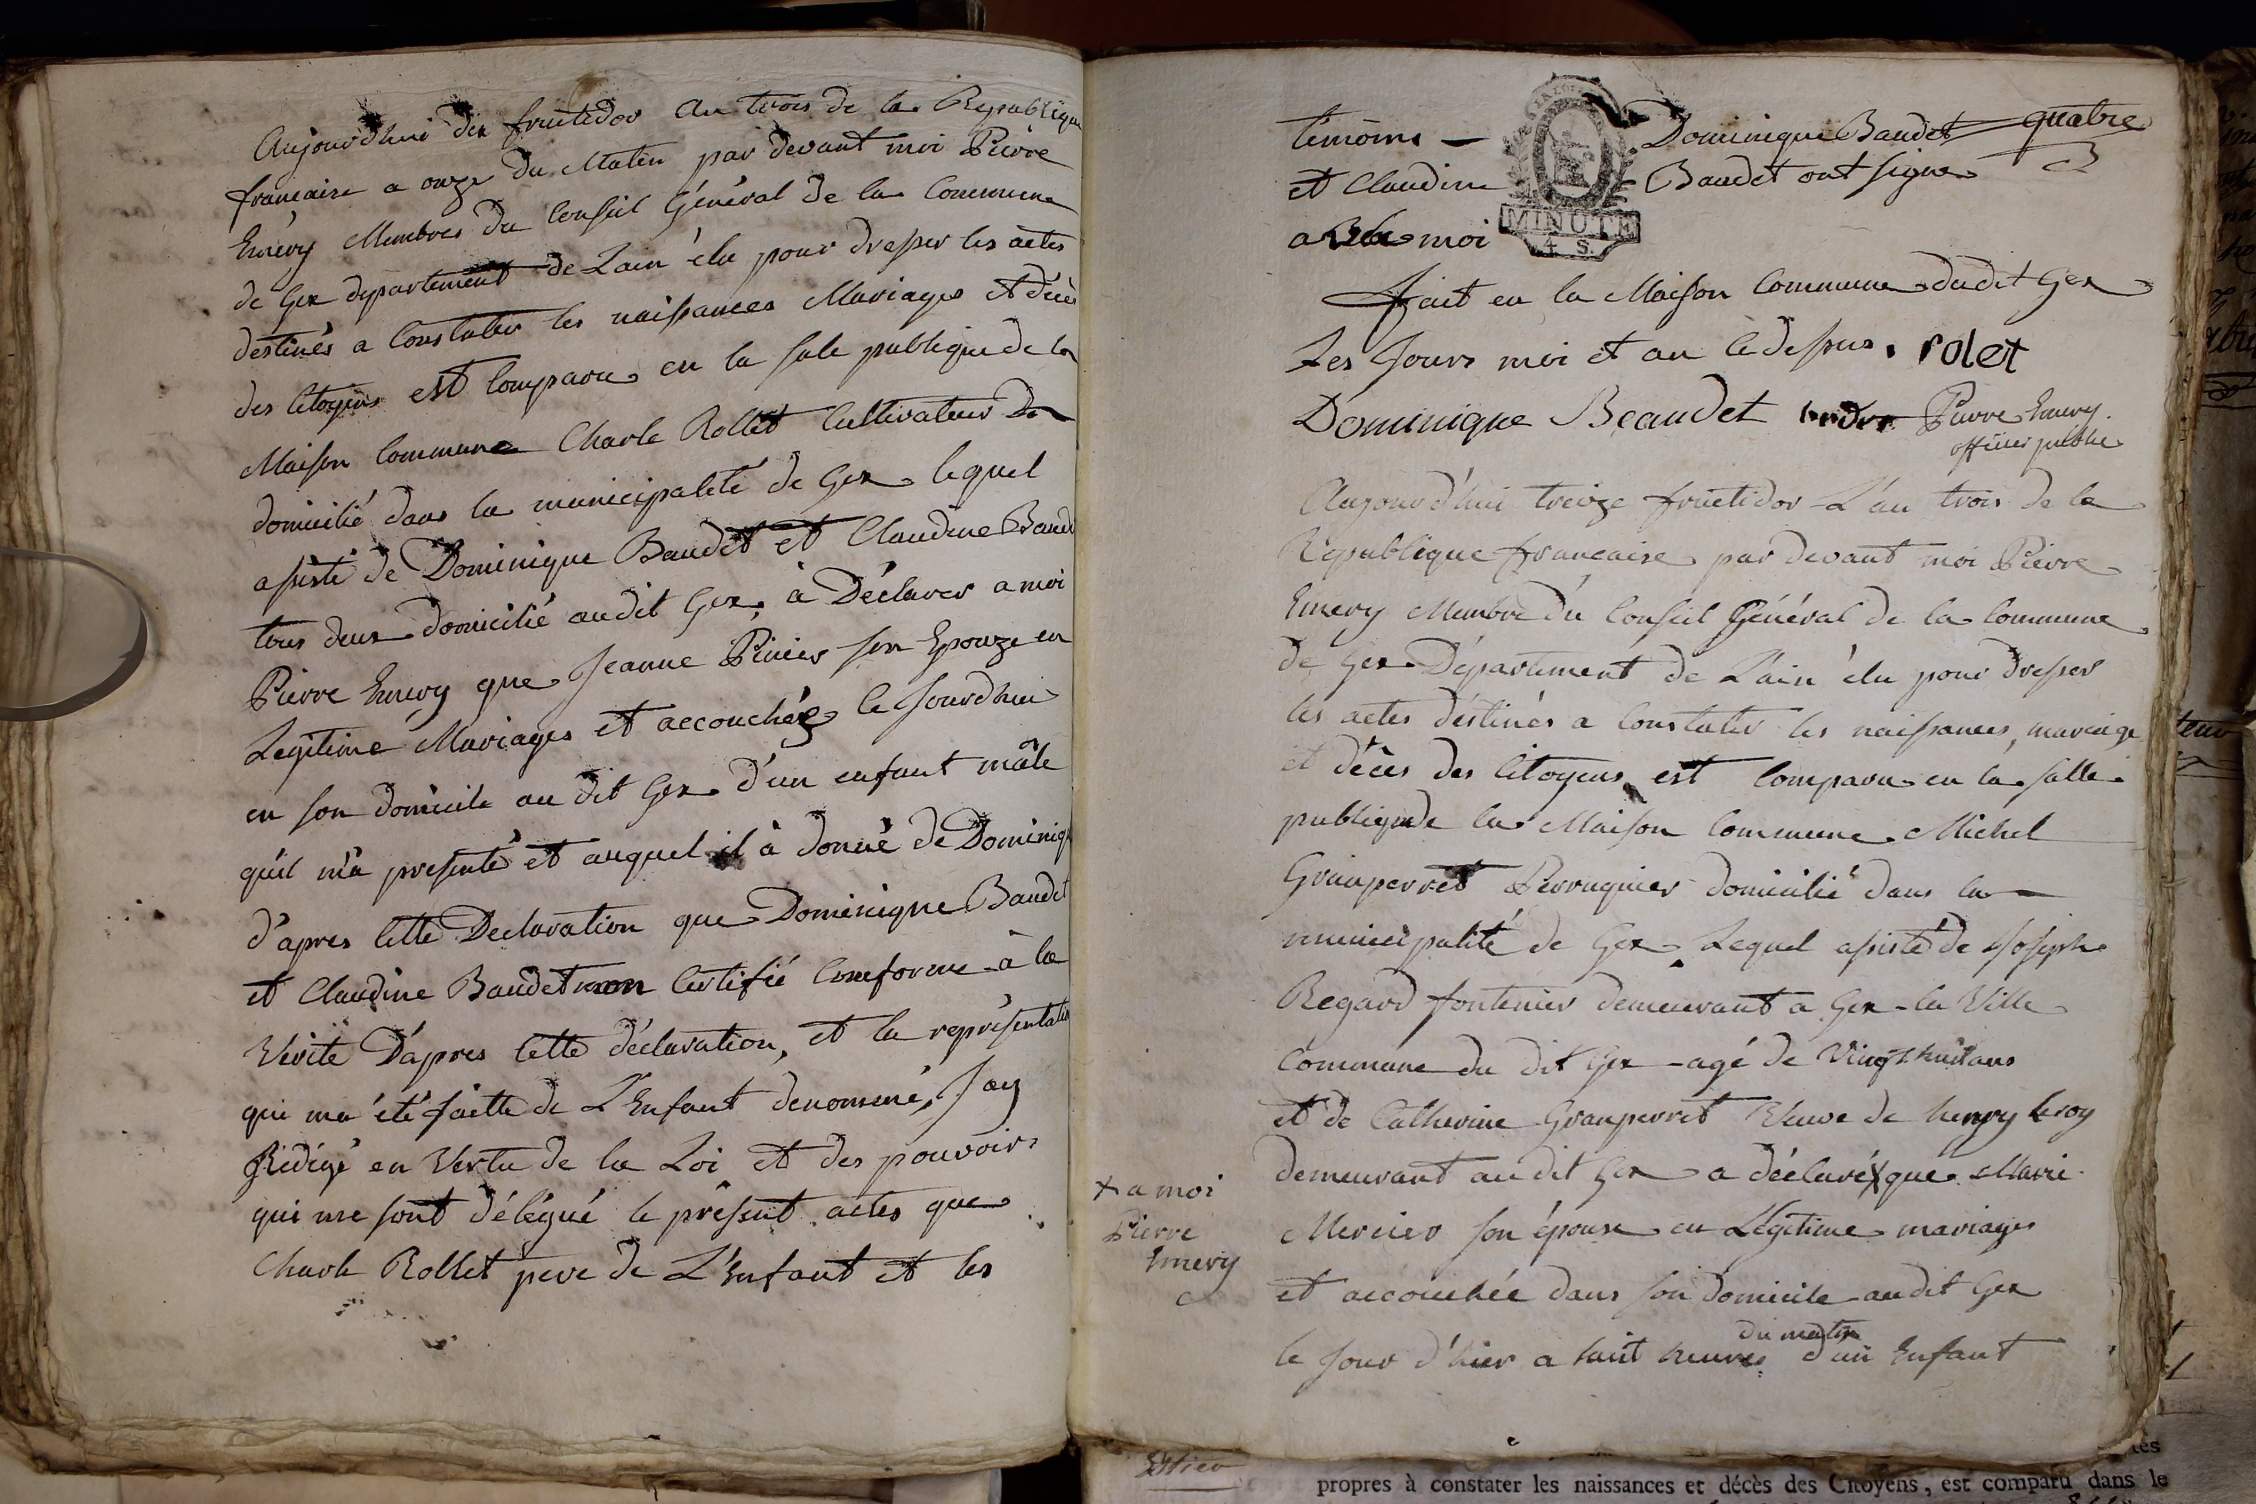 Aujourd'hui dix fructidor an trois de la République
francaise a onze du Matin par devant moi Pierre
Emery Membres du Conseil Général de la Commune
de Gex departement de Lain élu pour dresser les actes
destinés a Constater les naissances Mariages et décès
des Citoyens est Comparu en la sale publique de la
Maison Commune Charle Rollet Cultivateur
domicilié dans la municipalité de Gex lequel
assisté de Dominique Baudet et Claudine Baud
tous deux domicilié audit Gex, à Déclarer a moi
Pierre Emery que Jeanne Pinier son Epouze en
Legitime Mariages et accouchéz le Jourdhui
en son domicile au dit Gex d'un enfant mâle
quil m'a presenté et auquel il à donné de Dominiq
d'apres Cette Declaration que Dominique Baudet
et Claudine Baudet mon Certifié Comforme à la
Vérité D'apres Cette déclaration, et la représentatio
qui ma été faitte de L'Enfant denommé, Jay
Rédigé en Vertu de la Loi et des pouvoirs
qui me sont délégué le présent actes que
Charle Rollet pere de L'Enfant et les
témoins — Dominique Baudet quatre
et Claudine Baudet ont signe
MINUTE
4 S.
avec moi
fait en la Maison Commune dudit Gex
Les Jours moi et an Cidessus. rolet
Dominique Beaudet Pierre Emery.
officier public
Aujourd'hui treize fructidor L'an trois de la
République francaise par devant moi Pierre
Emery Membre du Conseil Général de la Commune
de Gex Département de L'ain élu pour dresser
les actes déstinés a Constater les naissances, mariage
et décès des Citoyens est Comparu en la salle
publique de la Maison Commune Michel
Granperret Perruquier domicilié dans la
municipalité de Gex Lequel assisté de Joseph
Regard fontenier demeurant a Gex-la Ville
Commune du dit Gex - agé de Vingt huit ans
et de Catherine Granperret Veuve de henry leroy
demeurant au dit Gex a déclaré x que Marie
x a moi
Pierre
Emery
Mercier son épouse en Légitime mariages
et accouchée dans son domicile audit Gex
du matin
le jour d'hier a huit heures d'un Enfant
propres à constater les naissances et décès des Citoyens, est comparu dans le